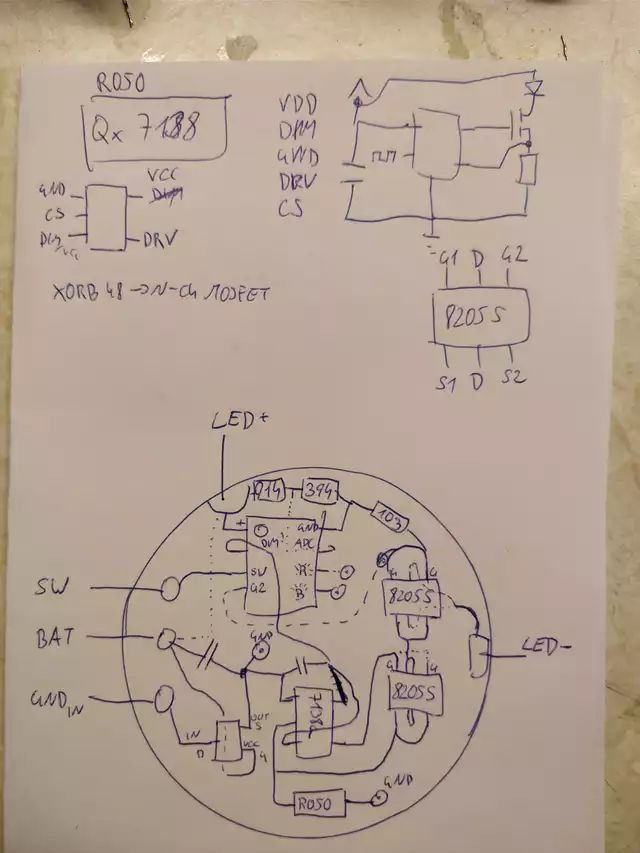 R050
Qx 7138
VCC
GND
CS
DRV
XORB 48 → N-CH MOSFET
VDD
DIM
GND
DRV
CS
G1 D G2
8205S
S1 D S2
LED+
914
394
103
+
GND
DIM
ADC
SW
R
G2
B
G G
8205S
SW
BAT
GND
LED-
G G
8205S
GND IN
IN
OUT
S
D
VCC
G
7138
R050
GND